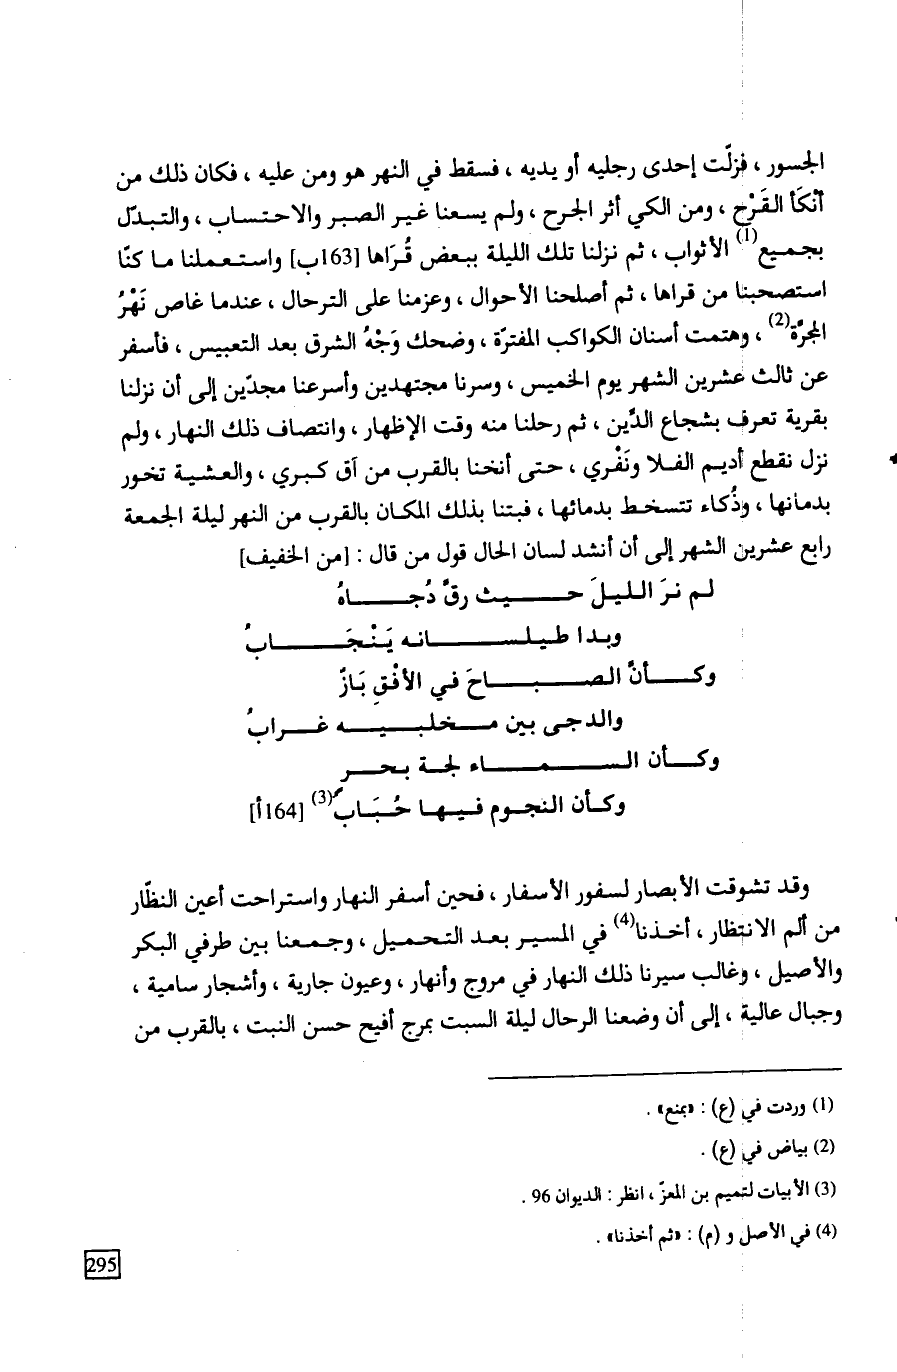 الجسور ، فزلّت إحدى رجليه أو يديه ، فسقط في النهر هو ومن عليه ، فكان ذلك من
أنْكَأ القَرْح ، ومن الكي أثر الجرح ، ولم يسعنا غير الصبر والاحتساب ، والتبدّل
بجميع(1) الأثواب ، ثم نزلنا تلك الليلة ببعض قُرَاها [163ب] واستعملنا ما كنّا
استصحبنا من قراها ، ثم أصلحنا الأحوال ، وعزمنا على الترحال ، عندما غاص نَهْرُ
المجرّة(2) ، وهتمت أسنان الكواكب المفترّة ، وضحك وَجْهُ الشرق بعد التعبيس ، فأسفر
عن ثالث عشرين الشهر يوم الخميس ، وسرنا مجتهدين وأسرعنا مجدّين إلى أن نزلنا
بقرية تعرف بشجاع الدِّين ، ثم رحلنا منه وقت الإظهار ، وانتصاف ذلك النهار ، ولم
نزل نقطع أديم الفلا ونَفْري ، حتى أنخنا بالقرب من آق كبري ، والعشية تخور
بدمائها ، وذُكاء تتسخط بدمائها ، فبتنا بذلك المكان بالقرب من النهر ليلة الجمعة
رابع عشرين الشهر إلى أن أنشد لسان الحال قول من قال : [من الخفيف]
لم نرَ الليلَ حيث رقَّ دُجاهُ
وبدا طيلسانه يَنْجَابُ
وكأنَّ الصباحَ في الأفْقِ بَازٌ
والدجى بين مخلبيه غرابُ
وكأن السماء لجة بحر
وكأن النجوم فيها حُبَابُ(3) [164أ]
وقد تشوقت الأبصار لسفور الأسفار ، فحين أسفر النهار واستراحت أعين النظّار
من ألم الانتظار ، أخذنا(4) في المسير بعد التحميل ، وجمعنا بين طرفي البكر
والأصيل ، وغالب سيرنا ذلك النهار في مروج وأنهار ، وعيون جارية ، وأشجار سامية ،
وجبال عالية ، إلى أن وضعنا الرحال ليلة السبت بمرج أفيح حسن النبت ، بالقرب من
(1) وردت في (ع) : «بمنع» .
(2) بياض في (ع) .
(3) الأبيات لتميم بن المعزّ ، انظر : الديوان 96 .
(4) في الأصل و (م) : «ثم أخذنا» .
295